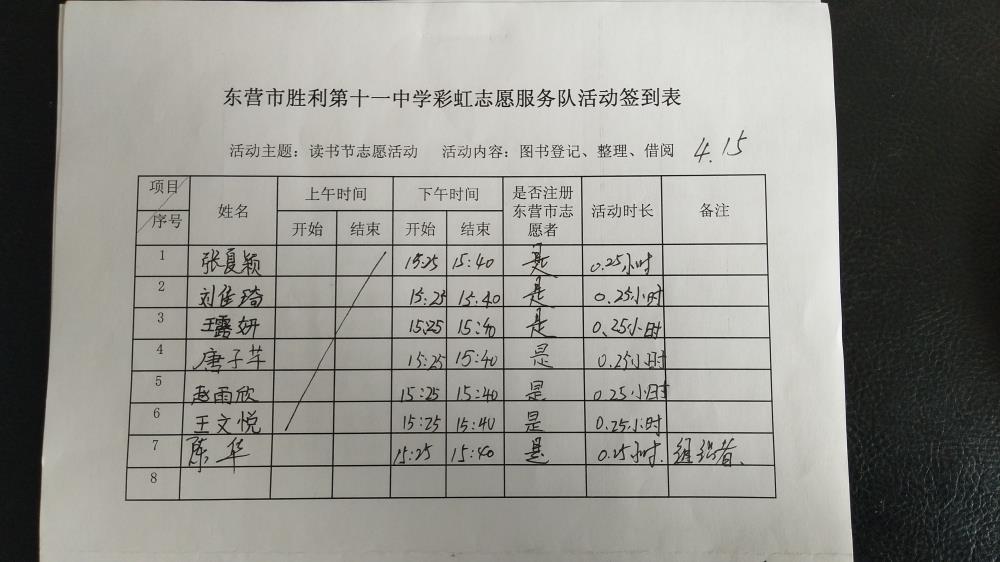 东营市胜利第十一中学彩虹志愿服务队活动签到表
活动主题：读书节志愿活动 活动内容：图书登记、整理、借阅 4.15
项目 序号 姓名 上午时间 下午时间 是否注册东营市志愿者 活动时长 备注
开始 结束 开始 结束
1 张夏颖 15:25 15:40 是 0.25小时
2 刘佳琦 15:25 15.40 是 0.25小时
3 王露妍 15:25 15:40 是 0.25小时
4 唐子芊 15:25 15:40 是 0.25小时
5 赵雨欣 15:25 15:40 是 0.25小时
6 王文悦 15:25 15:40 是 0.25小时
7 陈华 15:25 15:40 是 0.25小时. 组织者、
8